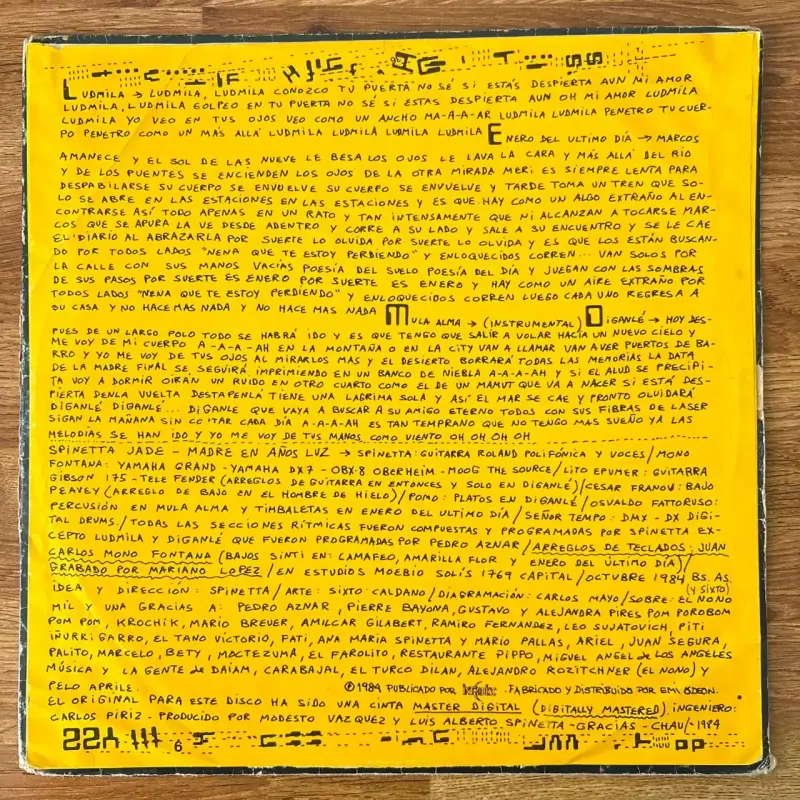 LUDMILA → LUDMILA, LUDMILA CONOZCO TU PUERTA NO SÉ SI ESTÁS DESPIERTA AUN MI AMOR
LUDMILA, LUDMILA GOLPEO EN TU PUERTA NO SÉ SI ESTAS DESPIERTA AUN OH MI AMOR LUDMILA
LUDMILA YO VEO EN TUS OJOS VEO COMO UN ANCHO MA-A-A-AR LUDMILA LUDMILA PENETRO TU CUER-
PO PENETRO COMO UN MÁS ALLÁ LUDMILA LUDMILA LUDMILA LUDMILA ENERO DEL ULTIMO DÍA → MARCOS
AMANECE Y EL SOL DE LAS NUEVE LE BESA LOS OJOS LE LAVA LA CARA Y MÁS ALLÁ DEL RÍO
Y DE LOS PUENTES SE ENCIENDEN LOS OJOS DE LA OTRA MIRADA MERI ES SIEMPRE LENTA PARA
DESPABILARSE SU CUERPO SE ENVUELVE SU CUERPO SE ENVUELVE Y TARDE TOMA UN TREN QUE SO-
LO SE ABRE EN LAS ESTACIONES EN LAS ESTACIONES Y ES QUE HAY COMO UN ALGO EXTRAÑO AL EN-
CONTRARSE ASÍ TODO APENAS EN UN RATO Y TAN INTENSAMENTE QUE NI ALCANZAN A TOCARSE MAR-
COS QUE SE APURA LA VE DESDE ADENTRO Y CORRE A SU LADO Y SALE A SU ENCUENTRO Y SE LE CAE
EL DIARIO AL ABRAZARLA POR SUERTE LO OLVIDA POR SUERTE LO OLVIDA Y ES QUE LOS ESTÁN BUSCAN-
DO POR TODOS LADOS "NENA QUE TE ESTOY PERDIENDO" Y ENLOQUECIDOS CORREN... VAN SOLOS POR
LA CALLE CON SUS MANOS VACÍAS POESÍA DEL SUELO POESÍA DEL DÍA Y JUEGAN CON LAS SOMBRAS
DE SUS PASOS POR SUERTE ES ENERO POR SUERTE ES ENERO Y HAY COMO UN AIRE EXTRAÑO POR
TODOS LADOS "NENA QUE TE ESTOY PERDIENDO" Y ENLOQUECIDOS CORREN LUEGO CADA UNO REGRESA A
SU CASA Y NO HACE MAS NADA Y NO HACE MAS NADA MULA ALMA → (INSTRUMENTAL) DIGANLÉ → HOY DES-
PUES DE UN LARGO POLO TODO SE HABRÁ IDO Y ES QUE TENGO QUE SALIR A VOLAR HACIA UN NUEVO CIELO Y
ME VOY DE MI CUERPO A-A-A-AH EN LA MONTAÑA O EN LA CITY VAN A LLAMAR VAN A VER PUERTOS DE BA-
RRO Y YO ME VOY DE TUS OJOS AL MIRARLOS MAS Y EL DESIERTO BORRARÁ TODAS LAS MEMORIAS LA DATA
DE LA MADRE FINAL SE SEGUIRÁ IMPRIMIENDO EN UN BANCO DE NIEBLA A-A-A-AH Y SI EL ALUD SE PRECIPI-
TA VOY A DORMIR OIRÁN UN RUIDO EN OTRO CUARTO COMO EL DE UN MAMUT QUE VA A NACER SI ESTÁ DES-
PIERTA DENLA VUELTA DESTAPENLÁ TIENE UNA LAGRIMA SOLA Y ASÍ EL MAR SE CAE Y PRONTO OLVIDARÁ
DIGANLÉ DIGANLÉ... DIGANLE QUE VAYA A BUSCAR A SU AMIGO ETERNO TODOS CON SUS FIBRAS DE LASER
SIGAN LA MAÑANA SIN CO TAR CADA DÍA A-A-A-AH ES TAN TEMPRANO QUE NO TENGO MÁS SUEÑO YA LAS
MELODÍAS SE HAN IDO Y YO ME VOY DE TUS MANOS COMO VIENTO OH OH OH OH
SPINETTA JADE - MADRE EN AÑOS LUZ → SPINETTA: GUITARRA ROLAND POLIFÓNICA Y VOCES/MONO
FONTANA: YAMAHA GRAND - YAMAHA DX7 - OBX-8 OBERHEIM - MOOG THE SOURCE/LITO EPUMER: GUITARRA
GIBSON 175 - TELE FENDER (ARREGLOS DE GUITARRA EN ENTONCES Y SOLO EN DIGANLÉ)/CESAR FRANOV: BAJO
PEAVEY (ARREGLO DE BAJO EN EL HOMBRE DE HIELO)/POMO: PLATOS EN DIGANLÉ/OSVALDO FATTORUSO:
PERCUSIÓN EN MULA ALMA Y TIMBALETAS EN ENERO DEL ULTIMO DÍA/SEÑOR TEMPO: DMX - DX DIGI-
TAL DRUMS./TODAS LAS SECCIONES RÍTMICAS FUERON COMPUESTAS Y PROGRAMADAS POR SPINETTA EX-
CEPTO LUDMILA Y DIGANLÉ QUE FUERON PROGRAMADAS POR PEDRO AZNAR/ARREGLOS DE TECLADOS: JUAN
CARLOS MONO FONTANA (BAJOS SINTI EN: CAMAFEO, AMARILLA FLOR Y ENERO DEL ÚLTIMO DÍA)/
GRABADO POR MARIANO LOPEZ/EN ESTUDIOS MOEBIO SOLÍS 1769 CAPITAL/OCTUBRE 1984 BS. AS.
IDEA Y DIRECCIÓN: SPINETTA/ARTE: SIXTO CALDANO/DIAGRAMACIÓN: CARLOS MAYO/SOBRE: EL NONO (Y SIXTO)
MIL Y UNA GRACIAS A: PEDRO AZNAR, PIERRE BAYONA, GUSTAVO Y ALEJANDRA PIRES POM POROBOM
POM POM, KROCHIK, MARIO BREUER, AMILCAR GILABERT, RAMIRO FERNANDEZ, LEO SUJATOVICH, PITI
IÑURRIGARRO, EL TANO VICTORIO, FATI, ANA MARIA SPINETTA Y MARIO PALLAS, ARIEL, JUAN SEGURA,
PALITO, MARCELO, BETY, MOCTEZUMA, EL FAROLITO, RESTAURANTE PIPPO, MIGUEL ANGEL de LOS ANGELES
MÚSICA Y LA GENTE de DAIAM, CARABAJAL, EL TURCO DILAN, ALEJANDRO ROZITCHNER (EL NONO) Y
PELO APRILE. ©1984 PUBLICADO POR . FABRICADO Y DISTRIBUÍDO POR EMI ODEON.
EL ORIGINAL PARA ESTE DISCO HA SIDO UNA CINTA MASTER DIGITAL (DIGITALLY MASTERED), INGENIERO:
CARLOS PIRIZ - PRODUCIDO POR MODESTO VAZQUEZ Y LUÍS ALBERTO SPINETTA - GRACIAS - CHAU/- 1984
6